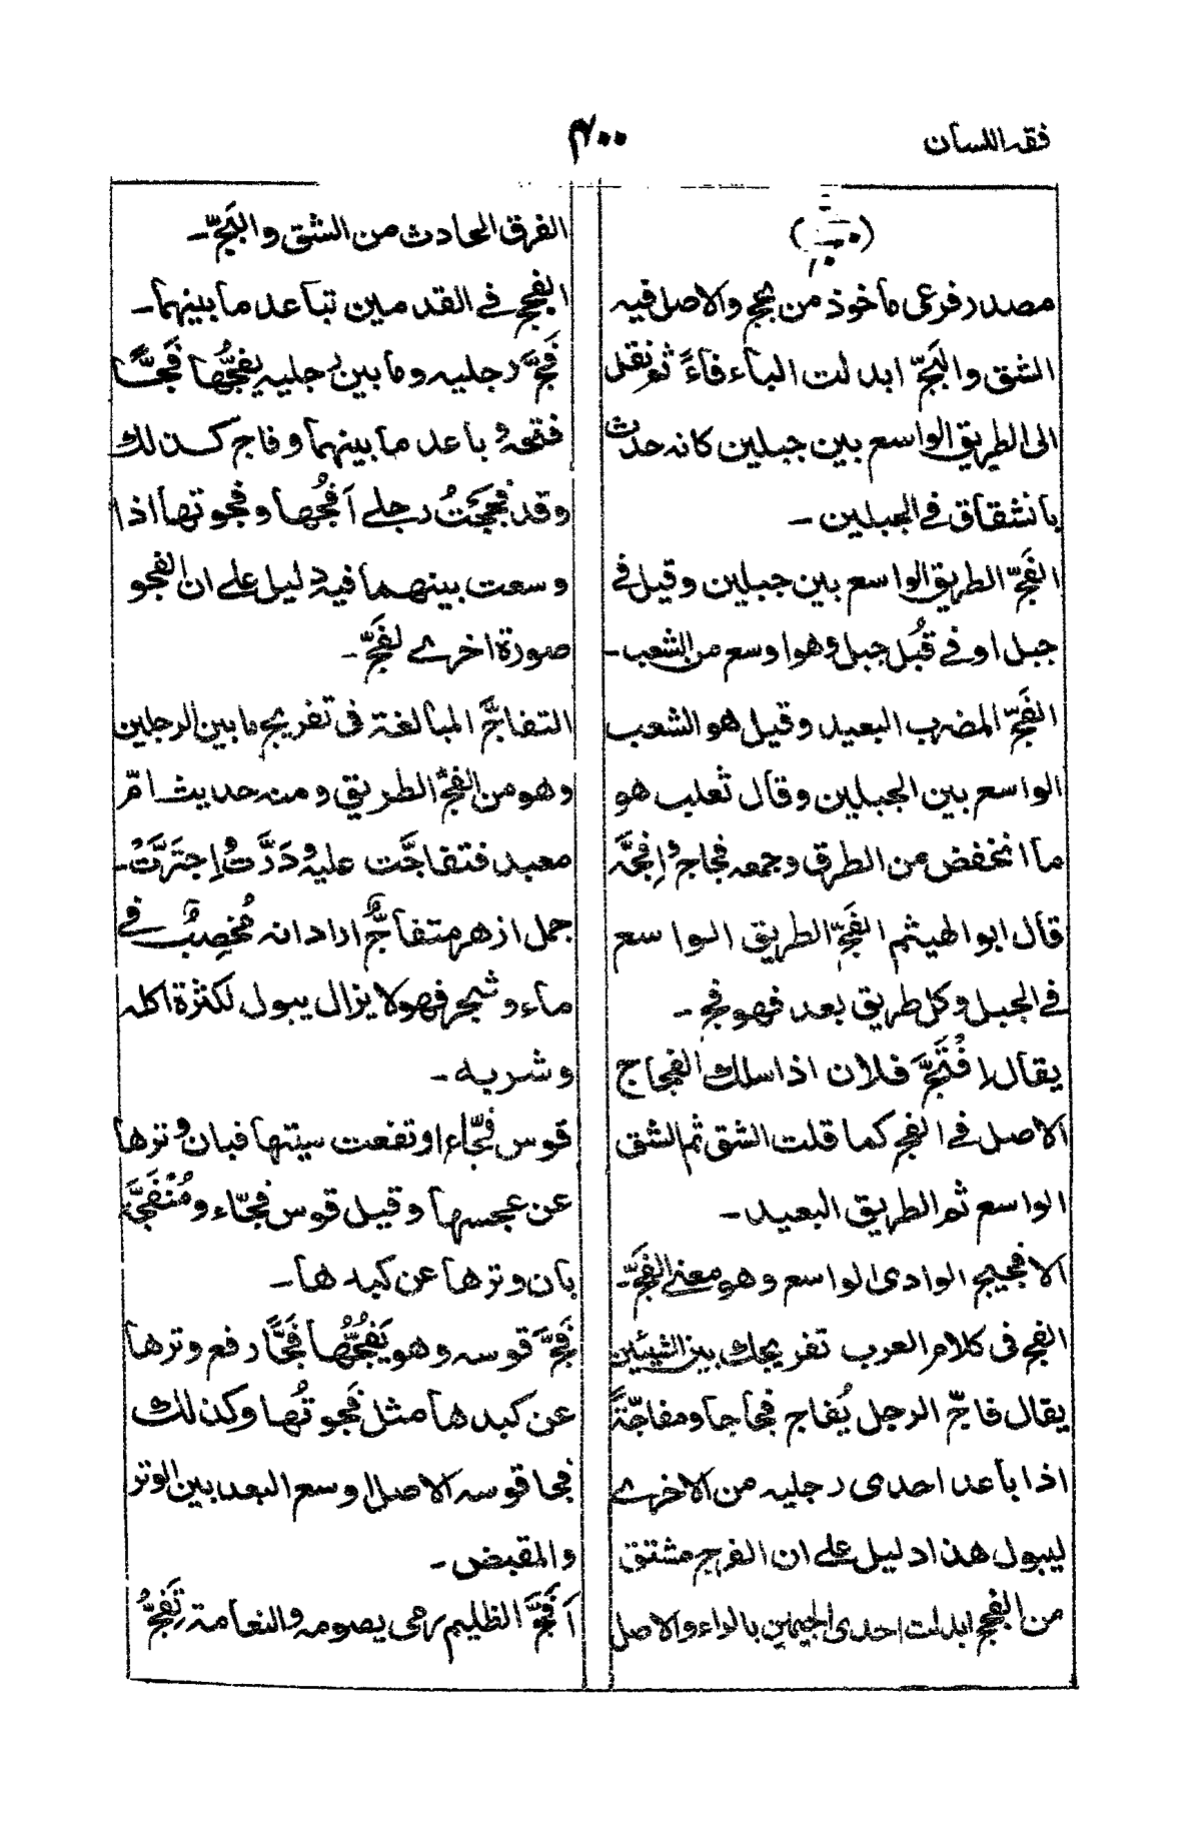 فقه اللسان
۴۰۰
مصدر فرعی مأخوذ من بجج والاصل فیه
الشق والبَجّ ابدلت الباء فاءً ثم نقل
الی الطریق الواسع بین جبلین کانه حدث
بانشقاق فی الجبلین -
الفَجّ الطریق الواسع بین جبلین وقیل فی
جبل او فی قُبُل جبل وهو اوسع من الشعب -
الفَجّ المضرب البعید وقیل هو الشعب
الواسع بین الجبلین وقال ثعلب هو
ما انخفض من الطرق وجمعه فجاج و اِفِجَّه
قال ابو الهیثم الفَجّ الطریق الواسع
فی الجبل وکل طریق بعد فهو فج -
یقال افْتَجَّ فلان اذا سلک الفجاج
الاصل فی الفج کما قلت الشق ثم الشق
الواسع ثم الطریق البعید -
الافجیج الوادی الواسع وهو معنی الفَجَّ -
الفج فی کلام العرب تفریجک بین الشیئین
یقال فاجّ الرجل یُفاج فجاجا ومفاجّةً
اذا باعد احدی رجلیه من الاخرے
لیبول هذا دلیل علی ان الفرج مشتق
من الفجج ابدلت احدی الجیمین بالراء والاصل
الفرق الحادث من الشق والبَجّ -
الفجج فی القدمین تباعد ما بینهما -
فَجَّ رجلیه وما بین رجلیه یفُجُّها فَجًّا
فتحه و باعد ما بینهما وفاج کذلك
وقد فَجَجْتُ رجلے اَفُجُّها وفجوتها اذا
وسعت بینهما فیه دلیل علی ان الفجو
صورة اخرے لفَجّ -
التفاجّ المبالغة فی تفریج ما بین الرجلین
وهو من الفجّ الطریق ومنه حدیث امّ
معبد فتفاجَّت علیه و دَرَّت و اِجتَرَّتْ -
جمل ازهر متفاجٌّ اراد انه مُخصِبٌ فی
ماء وشجر فهو لا یزال یبول لکثرة اکله
وشربه -
قوس فجّاء ارتفعت سیتها فبان وترها
عن عجسها وقیل قوس فجّاء ومُنْفَجَّة
بان وترها عن کبدها -
فَجَّ قوسه وهو یَفُجُّها فَجًّا رفع وترها
عن کبدها مثل فَجوتُها وکذلك
فجا قوسه الاصل وسع البعد بین الوتر
والمقبض -
اَفَجَّ الظلیم رمی بصومه والنعامة تَفِجُّ